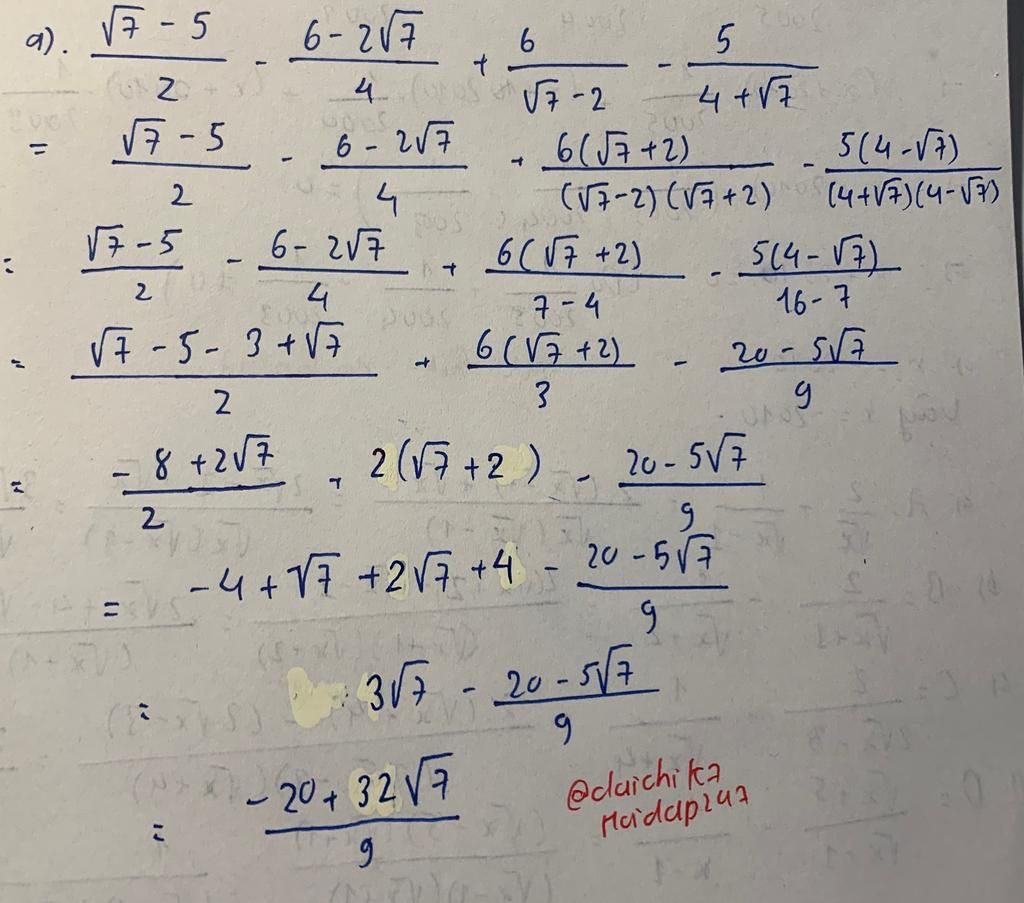 a). (√7 - 5)/2 - (6 - 2√7)/4 + 6/(√7 - 2) - 5/(4 + √7)
= (√7 - 5)/2 - (6 - 2√7)/4 + 6(√7 + 2)/((√7 - 2)(√7 + 2)) - 5(4 - √7)/((4 + √7)(4 - √7))
= (√7 - 5)/2 - (6 - 2√7)/4 + 6(√7 + 2)/(7 - 4) - 5(4 - √7)/(16 - 7)
= (√7 - 5 - 3 + √7)/2 + 6(√7 + 2)/3 - (20 - 5√7)/9
= (-8 + 2√7)/2 + 2(√7 + 2) - (20 - 5√7)/9
= -4 + √7 + 2√7 + 4 - (20 - 5√7)/9
= 3√7 - (20 - 5√7)/9
= (-20 + 32√7)/9
@daichik7
Hoidap247